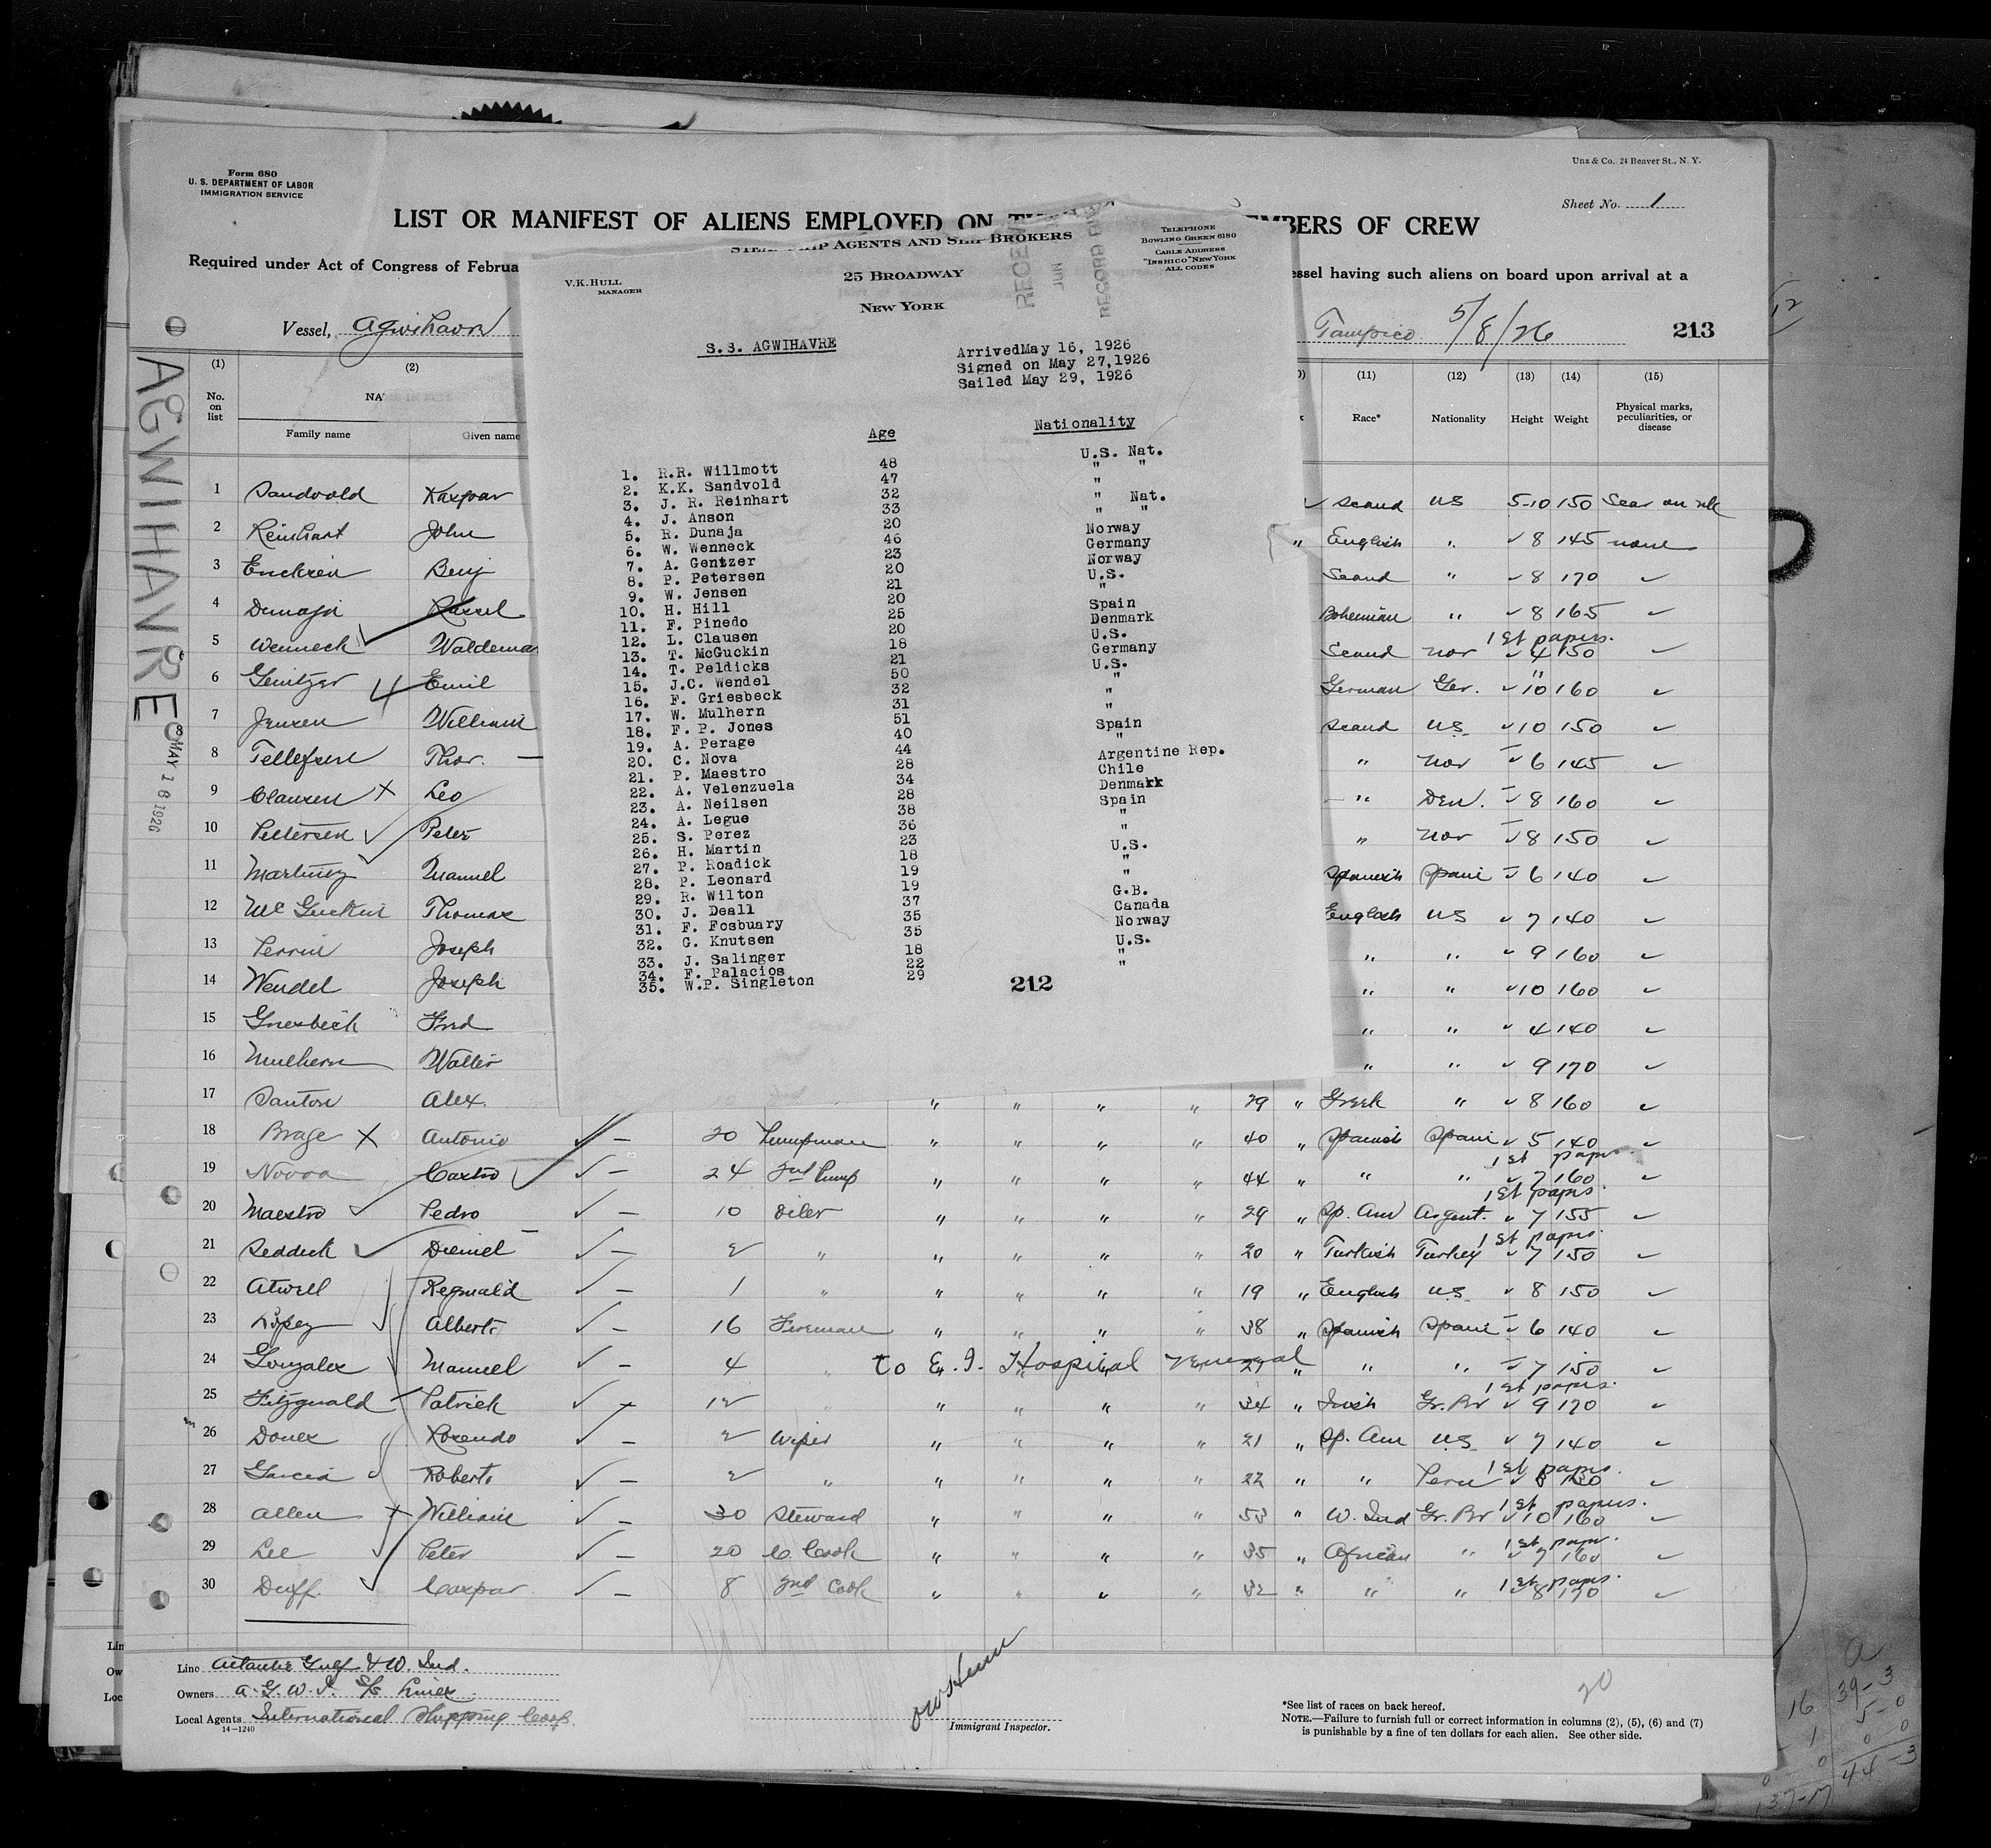 Form 680
U. S. DEPARTMENT OF LABOR
IMMIGRATION SERVICE
Unz & Co., 24 Beaver St., N. Y.
Sheet No. 1
LIST OR MANIFEST OF ALIENS EMPLOYED ON
MBERS OF CREW
Required under Act of Congress of Februa
essel having such aliens on board upon arrival at a
Vessel, Agwihavre
Tampico 5/8/26
213
AGWIHAVRE
MAY 16 1926
AGENTS AND SHIP BROKERS
TELEPHONE
BOWLING GREEN 6180
CABLE ADDRESS
"INSHICO" NEW YORK
ALL CODES
V.K. HULL
MANAGER
25 BROADWAY
NEW YORK
S.S. AGWIHAVRE
ArrivedMay 16, 1926
Signed on May 27,1926
Sailed May 29, 1926
Age Nationality
1. R.R. Willmott 48 U.S. Nat.
2. K.K. Sandvold 47 " "
3. J. R. Reinhart 32 "
4. J. Anson 33 " Nat.
5. R. Dunaja 20 " "
6. W. Wenneck 46 Norway
7. A. Gentzer 23 Germany
8. P. Petersen 20 Norway
9. W. Jensen 21 U.S.
10. H. Hill 20 "
11. F. Pinedo 25 Spain
12. L. Clausen 20 Denmark
13. T. McGuckin 18 U.S.
14. T. Peldicks 21 Germany
15. J.C. Wendel 50 U.S.
16. F. Griesbeck 32 "
17. W. Mulhern 31 "
18. F. P. Jones 51 "
19. A. Perage 40 Spain
20. C. Nova 44 "
21. P. Maestro 28 Argentine Rep.
22. A. Velenzuela 34 Chile
23. A. Neilsen 28 Denmark
24. A. Legue 38 Spain
25. S. Perez 36 "
26. H. Martin 23 "
27. P. Roadick 18 U.S.
28. P. Leonard 19 "
29. R. Wilton 19 "
30. J. Deall 37 G.B.
31. F. Fosbuary 35 Canada
32. G. Knutsen 35 Norway
33. J. Salinger 18 U.S.
34. F. Palacios 22 "
35. W.P. Singleton 29 "
212
(1) (2) (11) (12) (13) (14) (15)
No. on list
Family name Given name
Race* Nationality Height Weight Physical marks, peculiarities, or disease
1 Sandvold Kaspar Scand US 5-10 150
2 Reinhart John " English " 8 145 none
3 Ericksen Benj Scand " 8 170
4 Dunaja Russel Bohemian " 8 165
5 Wenneck Waldemar Scand Nor 1st papers. 4 150
6 Gentzer Emil German Ger. " 10 160
7 Jensen William Scand US 10 150
8 Tellefsen Thor. " Nor 6 145
9 Clausen X Leo " Den. 8 160
10 Pettersen Peter " Nor 8 150
11 Martinez Manuel Spanish Spain 6 140
12 McGuckin Thomas English US 7 140
13 Perrin Joseph " " 9 160
14 Wendel Joseph " " 10 160
15 Griesbeck Fred " " 4 140
16 Mulhern Walter " " 9 170
17 Santon Alex. " " " " 29 " Greek " 8 160
18 Brage X Antonio 20 Pumpman " " " " 40 " Spanish Spain 5 140
19 Novoa Castro 24 2nd Pump " " " " 44 " " " 1st papers 7 160
20 Maestro Pedro 10 Oiler " " " " 29 " Sp. Am Argent. 1st papers. 7 155
21 Seddick Diemel 2 " " " " " 20 " Turkish Turkey 1st papers. 7 150
22 Atwell Reginald 1 " " " " " 19 " English US 8 150
23 Lopez Alberto 16 Fireman " " " " 38 " Spanish Spain 6 140
24 Gonzalez Manuel 4 " to E. I. Hospital venereal 27 " " " 7 150
25 Fitzgerald Patrick 12 " " " " " 34 " Irish Gr. Br 1st papers. 9 170
26 Dones Rosendo 2 Wiper " " " " 21 " Sp. Am US 7 140
27 Garcia Roberto 2 " " " " " 22 " " Peru 1st papers. 8 130
28 Allen X William 30 Steward " " " " 53 " W. Ind Gr. Br 1st papers. 10 160
29 Lee Peter 20 C. Cook " " " " 35 " African " 1st papers. 7 160
30 Duff Caspar 8 2nd Cook " " " " 32 " " " 1st papers. 8 170
Line Atlantic Gulf & W. Ind.
Owners A. G. W. I. S/S Lines
Local Agents International Shipping Corp.
14—1240
Immigrant Inspector.
20
*See list of races on back hereof.
NOTE.—Failure to furnish full or correct information in columns (2), (5), (6) and (7)
is punishable by a fine of ten dollars for each alien. See other side.
39-3
5-0
44-3